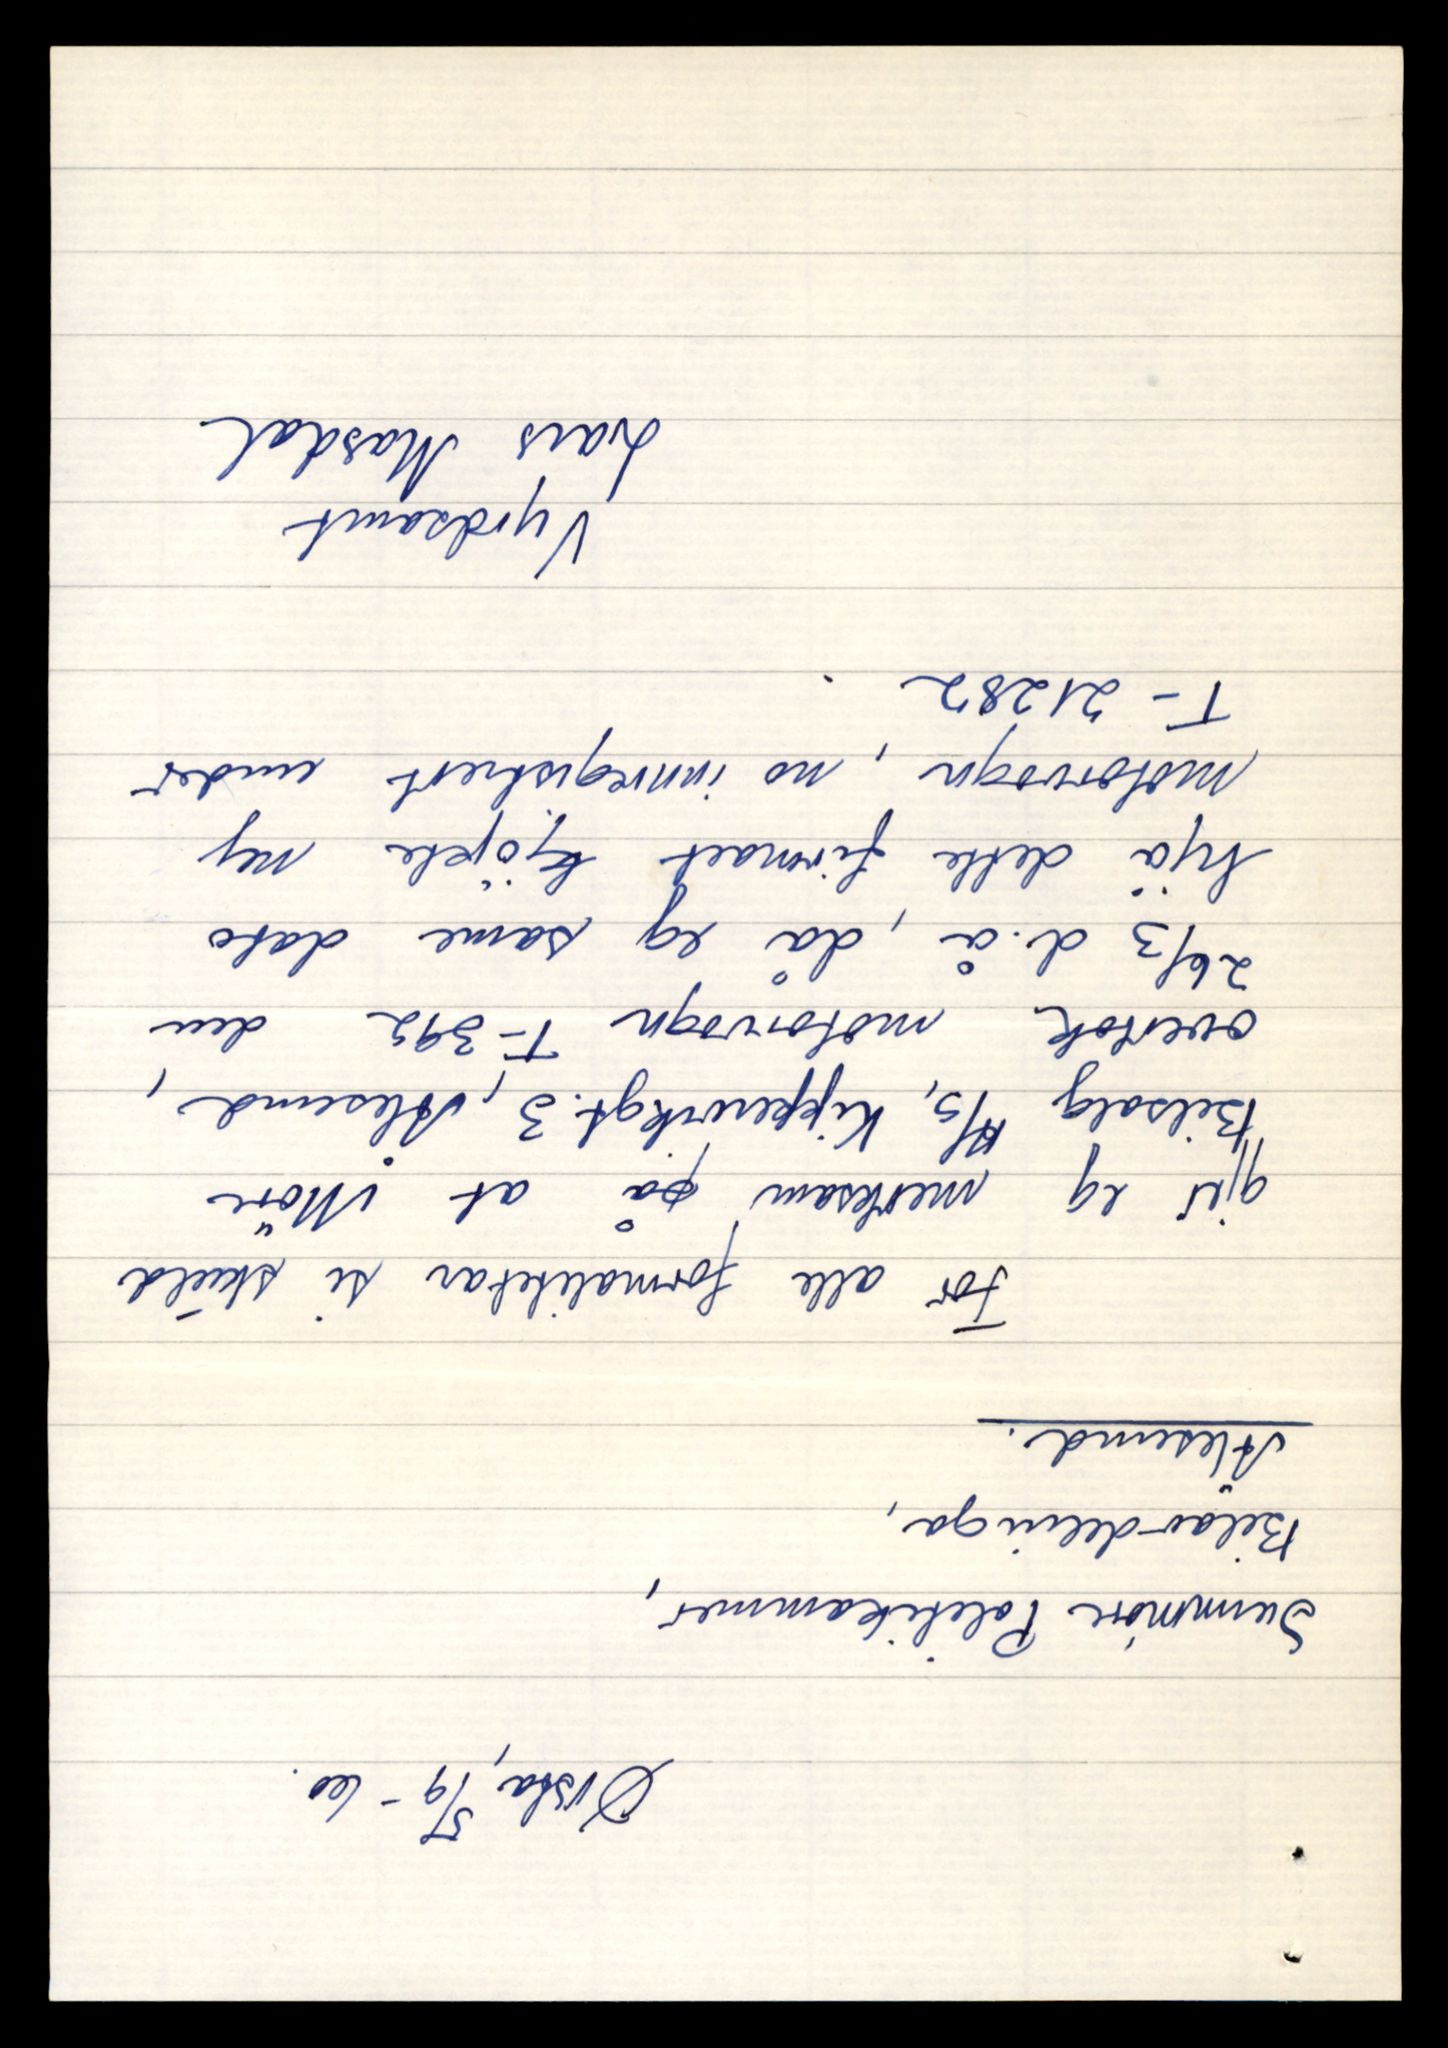 Ørsta, 5/9 - 60.
Sunnmöre Politikammer,
Bilavdelinga,
Ålesund.
For alle formalitetar si skuld
gjer eg merksam på at Möre
Bilsalg A/S, Kipperviksgt. 3, Ålesund,
overtok motorvogn T-392 den
26/3 d.å, då eg same dato
hjå dette firmaet kjöpte ny
motorvogn, no innregistrert under
T-21282.
Vyrdsamt
Lars Masdal